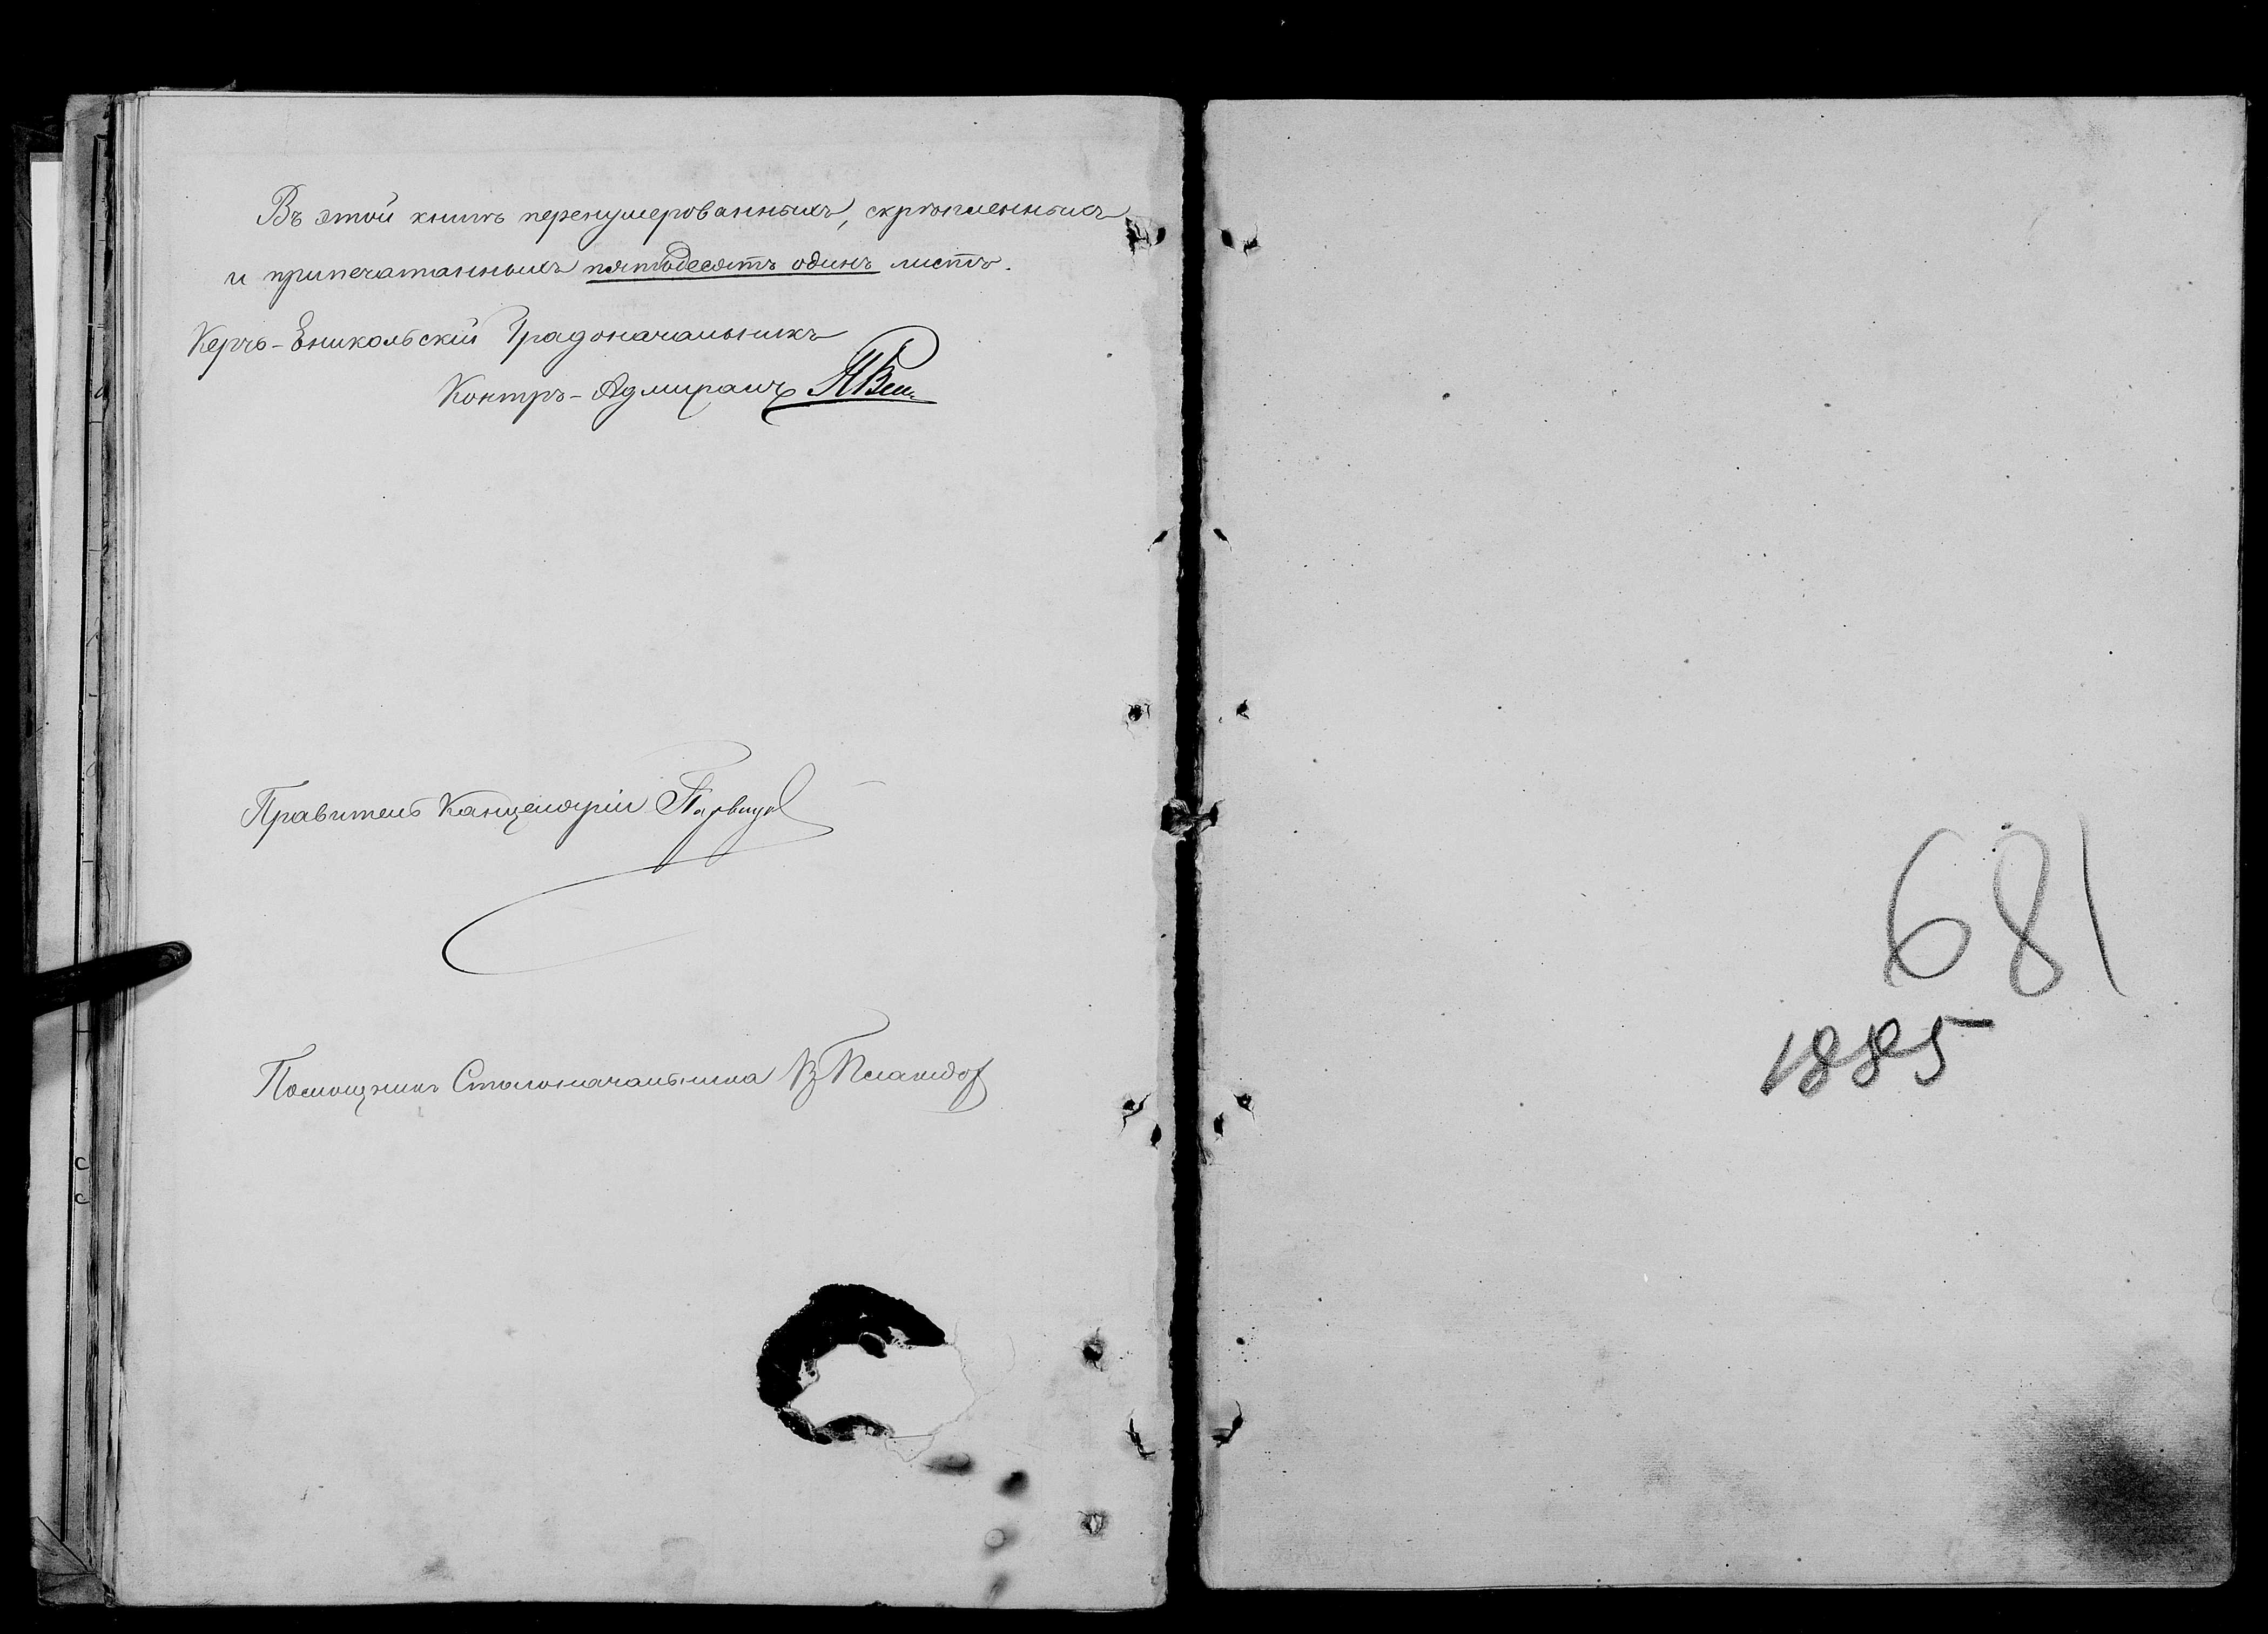 Въ этой книгѣ перенумерованныхъ, скрѣпленныхъ
и припечатанныхъ пятьдесятъ одинъ листъ.
Керчь-Еникольскій Градоначальникъ
Контръ-Адмиралъ
Правитель Канцеляріи
Помощникъ Столоначальника
681
1885